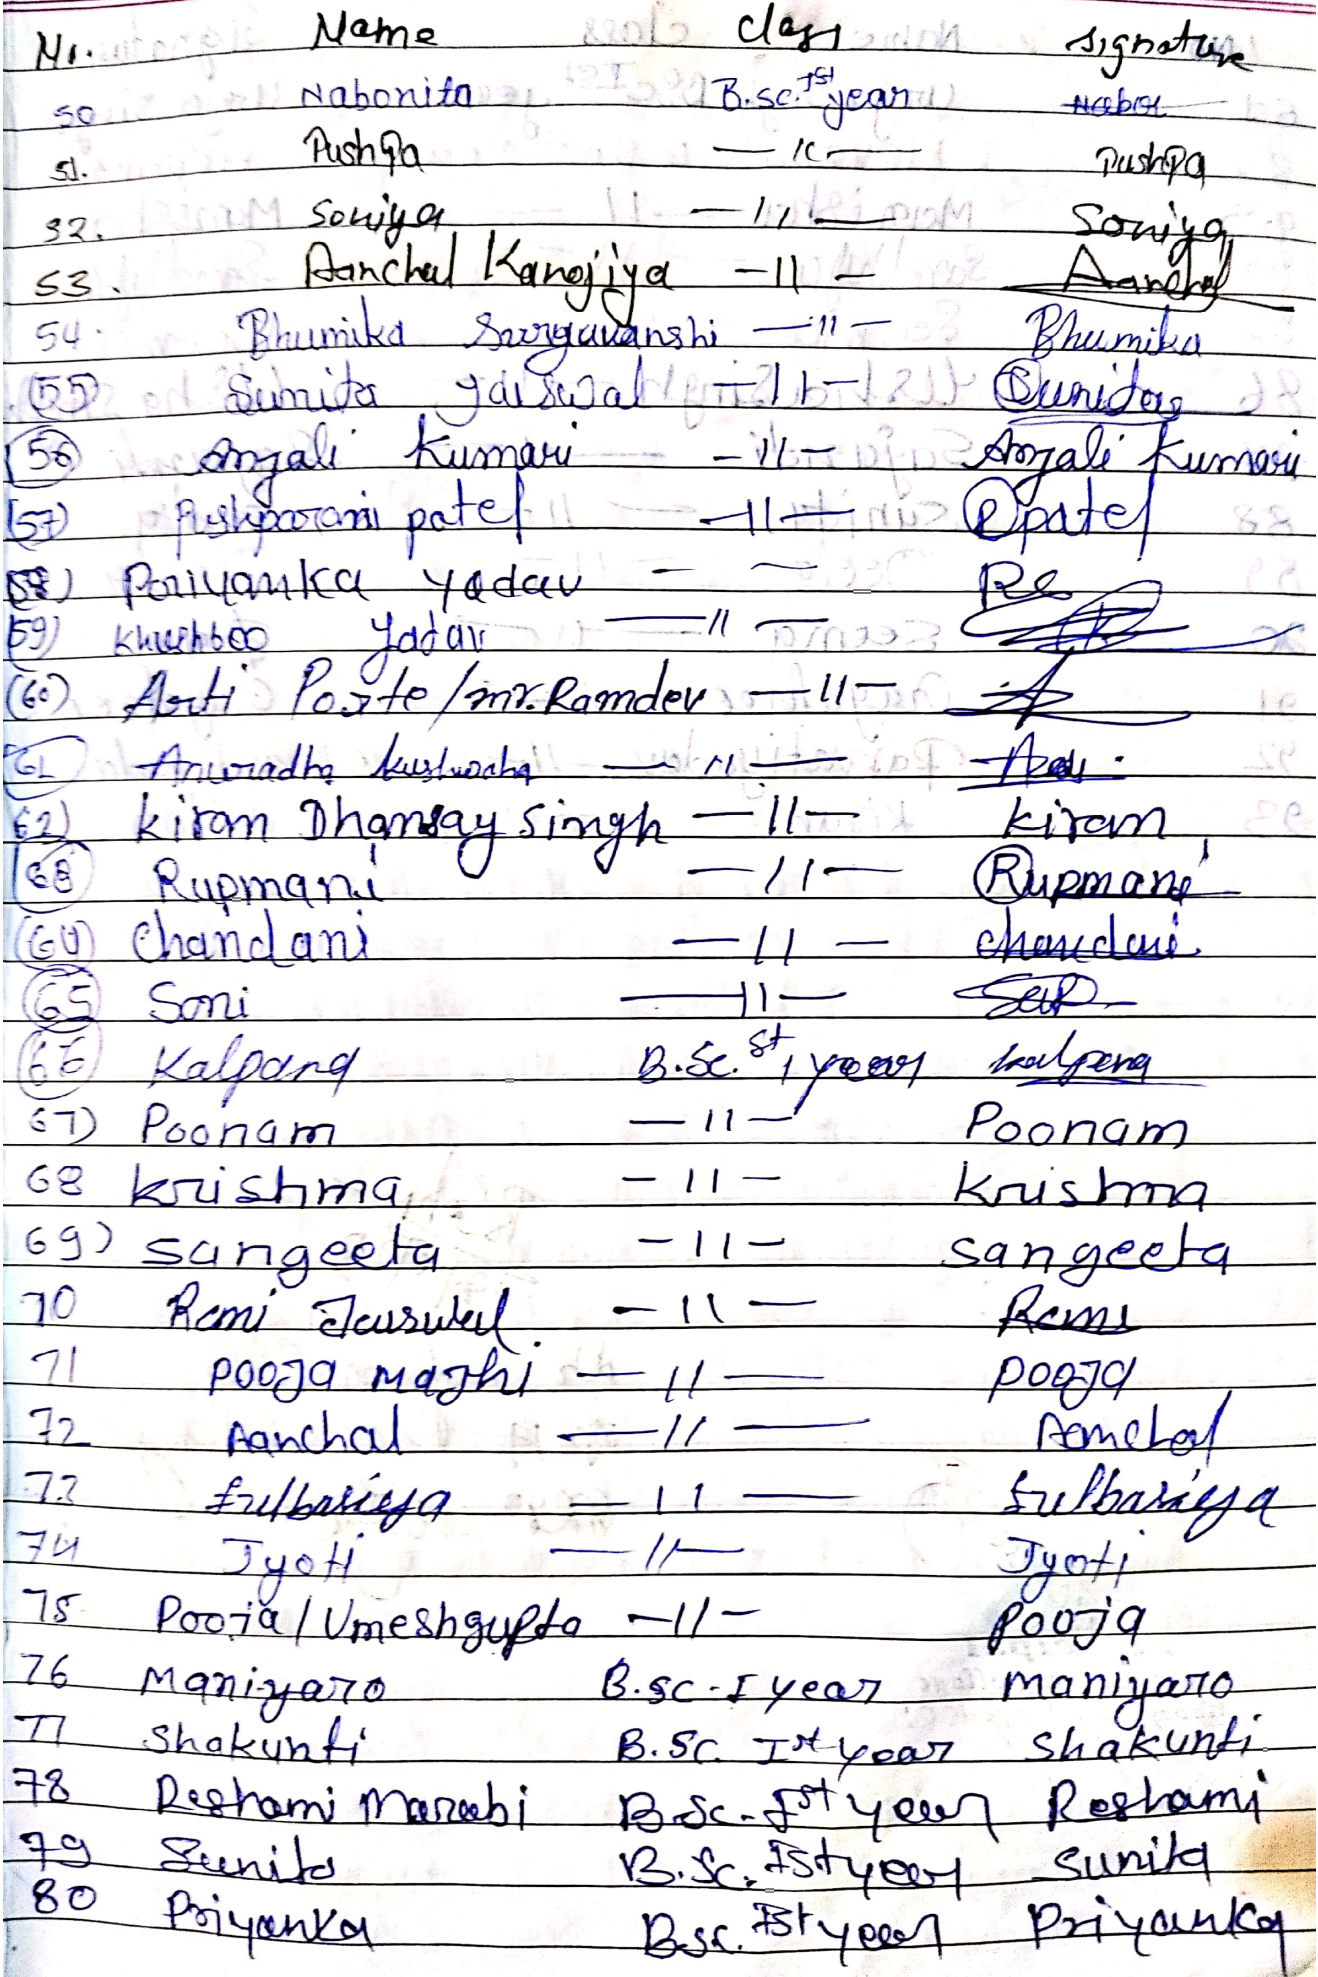 Nr. Name class signature
50 Nabonita B.sc. Ist year Nabo
51. Pushpa — 11 — Pushpa
52. Soniya — 11 — Soniya
53. Aanchal Kanojiya — 11 — Aanchal
54. Bhumika Suryavanshi — 11 — Bhumika
55 Sunita Jaiswal — 11 — Sunita
56 Anjali Kumari — 11 — Anjali Kumari
(57) Pushparani patel — 11 — P patel
58) Poriyanka Yadav — —
59) Khushboo Yadav — 11 —
(60) Arti Porte / mr. Ramdev — 11 —
61 Anuradha kushwaha — 11 —
62) kiran Dhansay Singh — 11 — kiran
63 Rupmani — 11 — Rupmani
(64) Chandani — 11 — chandani
65 Soni — 11 —
66 Kalpana B.Sc. st 1 year kalpana
67) Poonam — 11 — Poonam
68 krishma — 11 — krishma
69) sangeeta — 11 — sangeeta
70 Rani Jaiswal — 11 — Rani
71 pooja majhi — 11 — pooja
72 Aanchal — 11 — Aanchal
73 fulbasiya — 11 — fulbasiya
74 Jyoti — 11 — Jyoti
75 Pooja / Umeshgupta — 11 — pooja
76 Maniyaro B.sc - I year maniyaro
77 Shakunti B.Sc. Ist year shakunti
78 Reshami Marabi B.Sc - Ist year Reshami
79 Sunita B.Sc. Ist year sunita
80 Priyanka B.sc. Ist year Priyanka